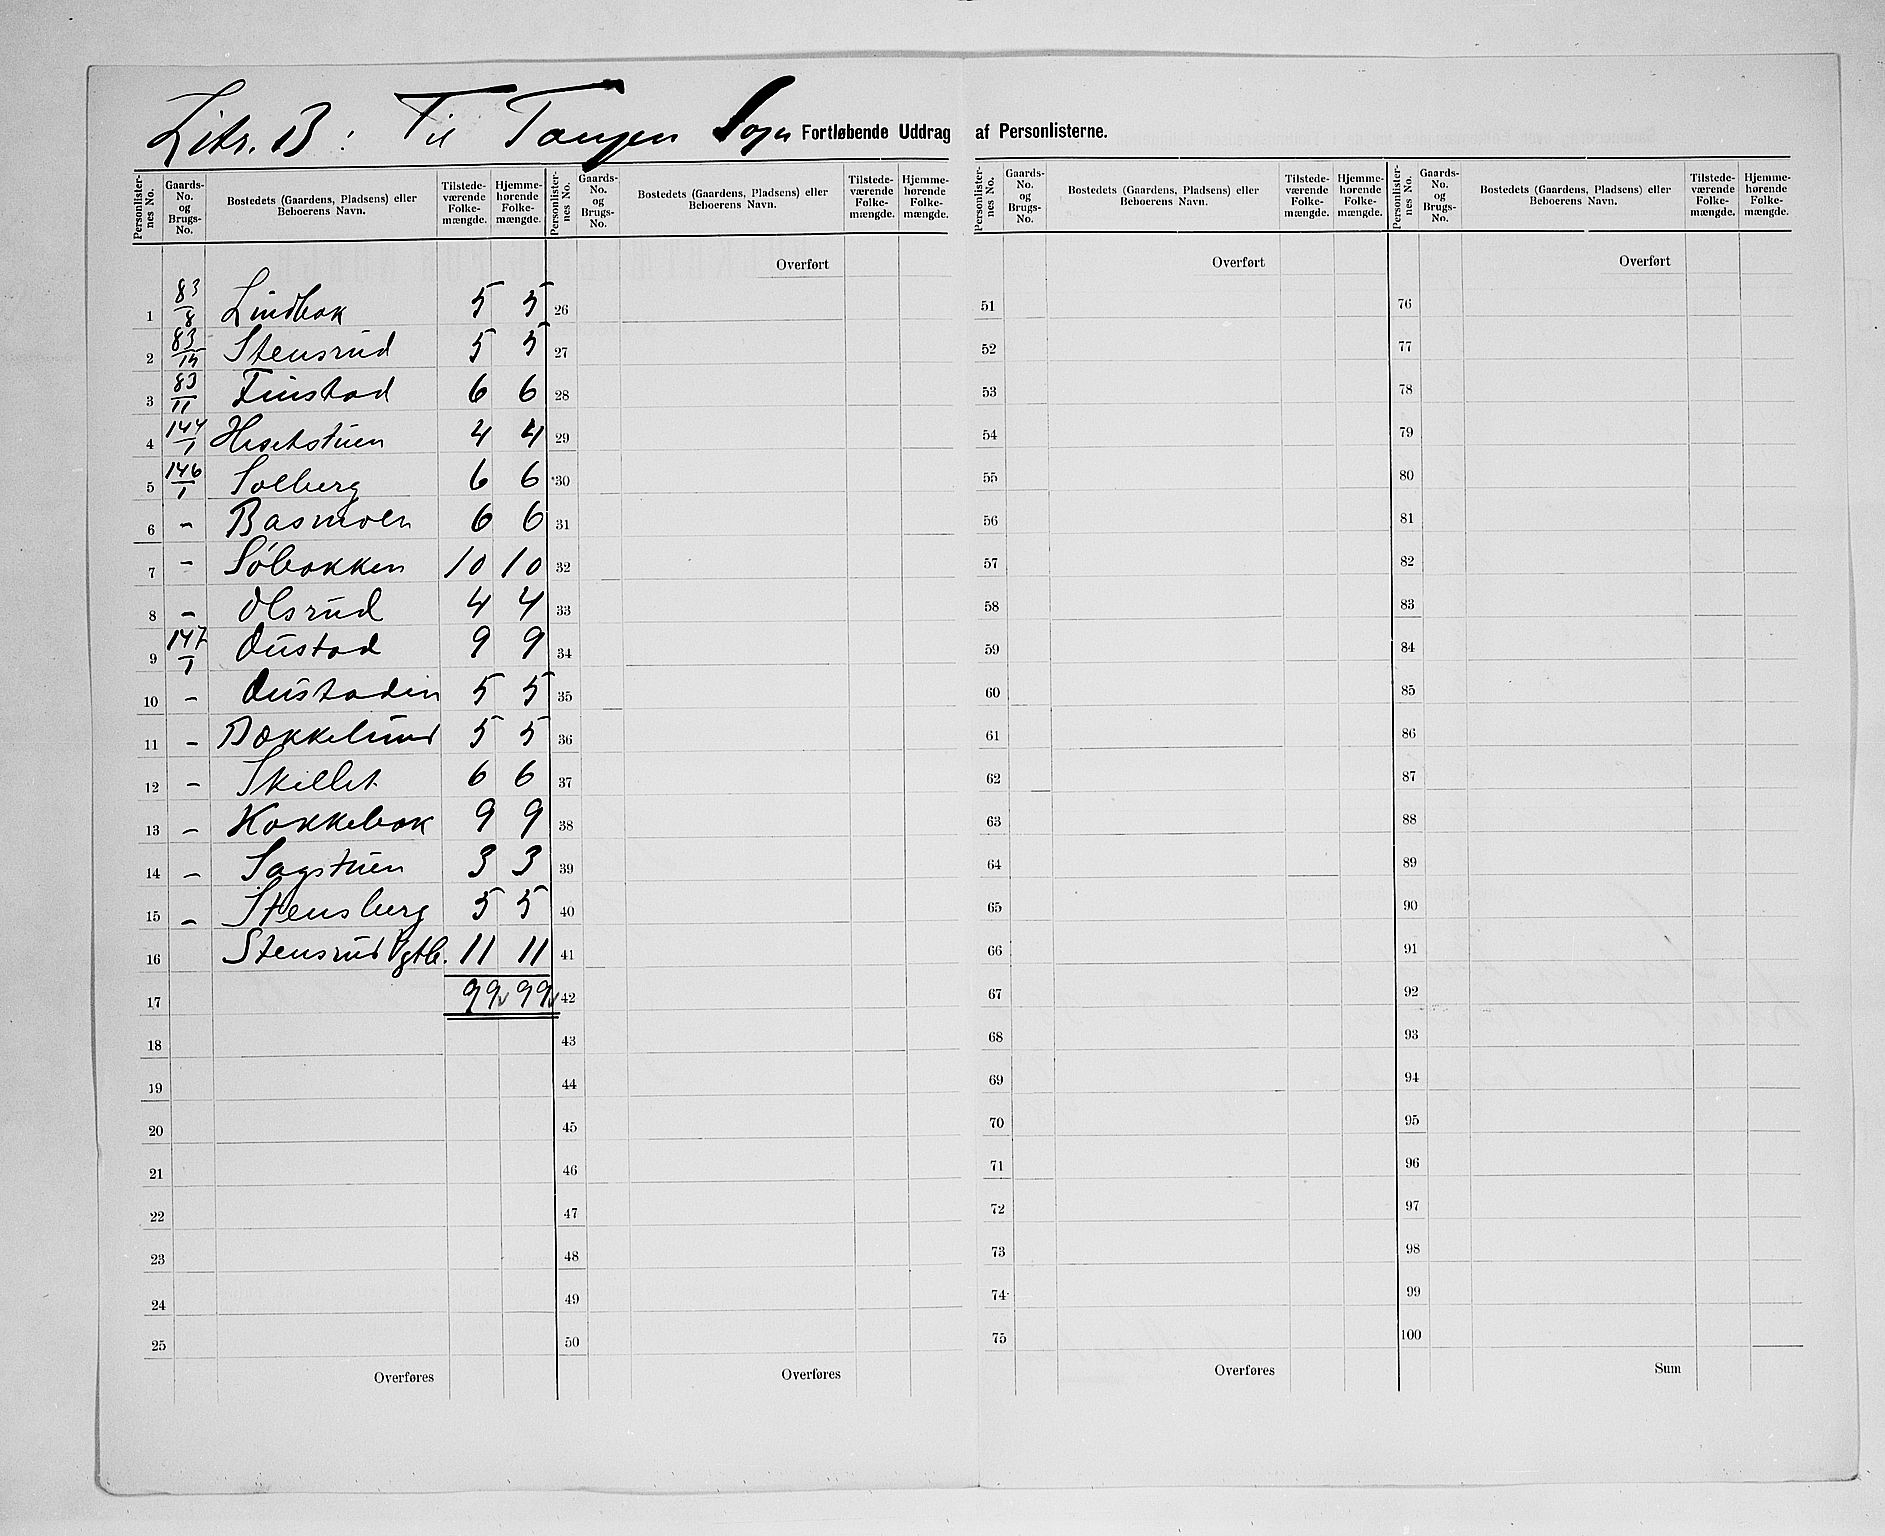 Litr. B: Til Tangen Sogn Fortløbende Uddrag af Personlisterne.
Personlister-nes No. Gaards-No. og Brugs-No. Bostedets (Gaardens, Pladsens) eller Beboerens Navn. Tilstede-værende Folke-mængde. Hjemme-hørende Folke-mængde.
Personlister-nes No. Gaards-No. og Brugs-No. Bostedets (Gaardens, Pladsens) eller Beboerens Navn. Tilstede-værende Folke-mængde. Hjemme-hørende Folke-mængde.
Personlister-nes No. Gaards-No. og Brugs-No. Bostedets (Gaardens, Pladsens) eller Beboerens Navn. Tilstede-værende Folke-mængde. Hjemme-hørende Folke-mængde.
Personlister-nes No. Gaards-No. og Brugs-No. Bostedets (Gaardens, Pladsens) eller Beboerens Navn. Tilstede-værende Folke-mængde. Hjemme-hørende Folke-mængde.
1 83/8 Lindbak 5 5
2 83/15 Stensrud 5 5
3 83/11 Finstad 6 6
4 144/1 4 4
5 146/1 Solberg 6 6
6 - Basmoen 6 6
7 - Søbakken 10 10
8 - Olsrud 4 4
9 147/1 Oustad 9 9
10 - Oustadin 5 5
11 - Bækkelund 5 5
12 - Skillet 6 6
13 - Kakkebak 9 9
14 - Sagstuen 3 3
15 - Stensberg 5 5
16 Stensrud 11 11
17 99 99
18
19
20
21
22
23
24
25
Overføres
Overført
26
27
28
29
30
31
32
33
34
35
36
37
38
39
40
41
42
43
44
45
46
47
48
49
50
Overføres
Overført
51
52
53
54
55
56
57
58
59
60
61
62
63
64
65
66
67
68
69
70
71
72
73
74
75
Overføres
Overført
76
77
78
79
80
81
82
83
84
85
86
87
88
89
90
91
92
93
94
95
96
97
98
99
100
Sum